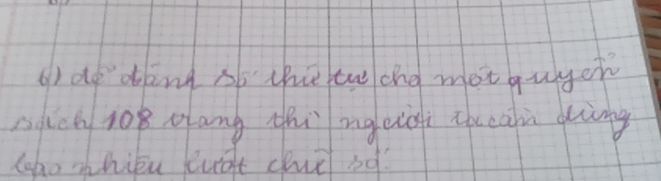 6) để đánh số thứ tự cho một quyển
sách 108 trang thì người ta cần dùng
bao nhiêu lượt chữ số